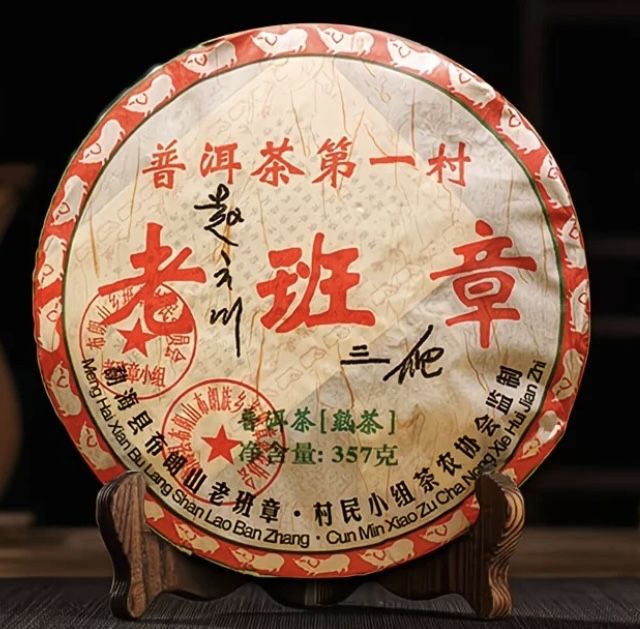 普洱茶第一村
老班章
赵
三爬
普洱茶[熟茶]
净含量: 357克
勐海县布朗山老班章·村民小组茶农协会监制
Meng Hai Xian Bu Lang Shan Lao Ban Zhang · Cun Min Xiao Zu Cha Nong Xie Hui Jian Zhi